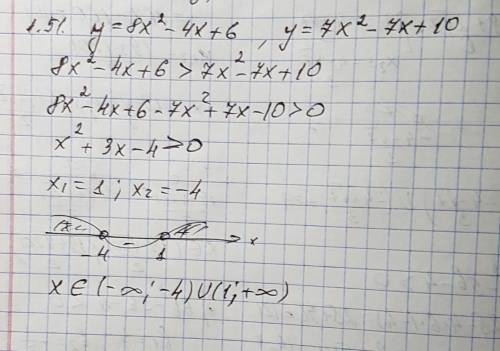 1.51. y = 8x² - 4x + 6 , y = 7x² - 7x + 10
8x² - 4x + 6 > 7x² - 7x + 10
8x² - 4x + 6 - 7x² + 7x - 10 > 0
x² + 3x - 4 > 0
x₁ = 1 ; x₂ = -4
+ - + x
-4 1
x ∈ (-∞; -4) ∪ (1; +∞)